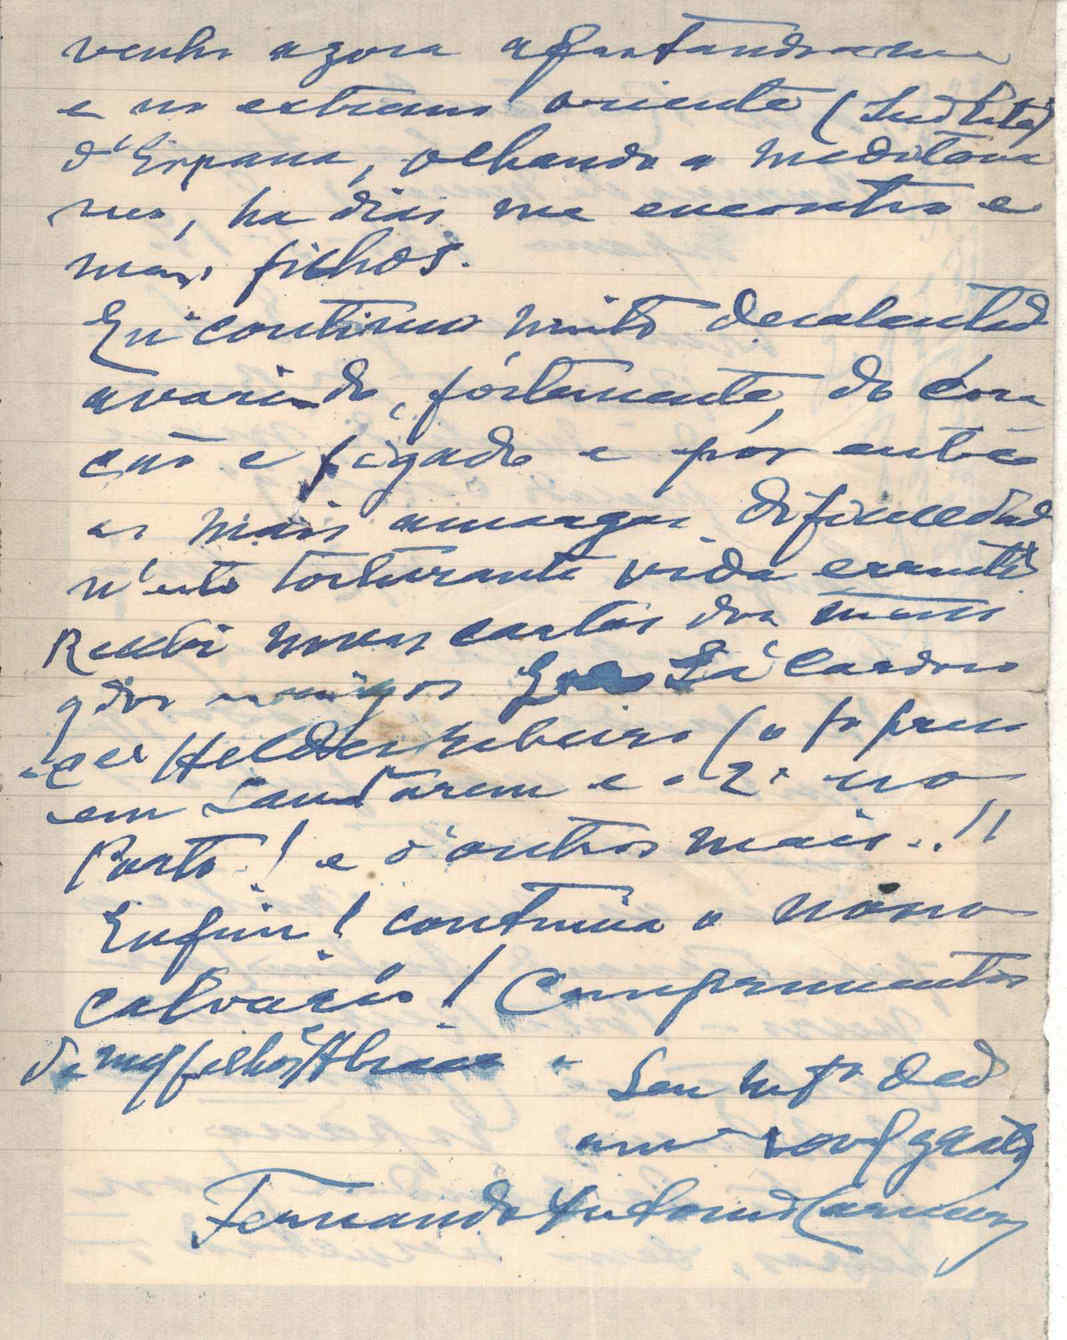 venho agora afastando-me
e no extremo oriente (Sud
d'Espana, olhando o mediterra
neo, ha dias me encontro e
meus filhos.
Eu continuo muito desalentado
avariado, fórtemente, do córa
ção e figado e pór entre
as mais amargas dificuldad
n'esta torturante vida errante
Recebi novas cartas dos meus
q.dos amigos Sá Cardoso
e cel Helder Ribeiro (o 1º preso
em Santarem e o 2º no
Porto! e ó outros mais..!!
Enfim! continúa o nosso
calvario! Comprimentos
de meus filhos. Abraço o
Seu mto ded
amo
Fernando